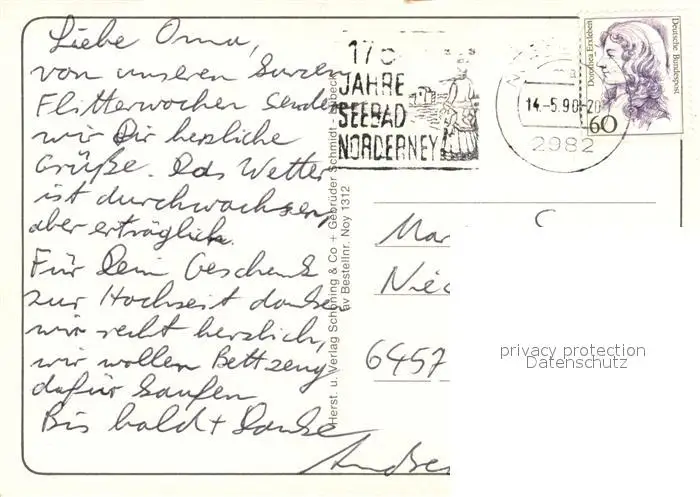 Liebe Oma,
von unseren kurzen
Flitterwochen senden
wir Dir herzliche
Grüße. Das Wetter
ist durchwachsen,
aber erträglich.
Für Dein Geschenk
zur Hochzeit danken
wir recht herzlich,
wir wollen Bettzeug
dafür kaufen
Bis bald + Danke
Herst. u. Verlag Schöning & Co + Gebrüder Schmidt
av Bestellnr. Noy 1312
175
JAHRE
SEEBAD
NORDERNEY
14.-5.90-20
2982
Dorothea Erxleben
Deutsche Bundespost
60
Mar
Niec
6457
privacy protection
Datenschutz